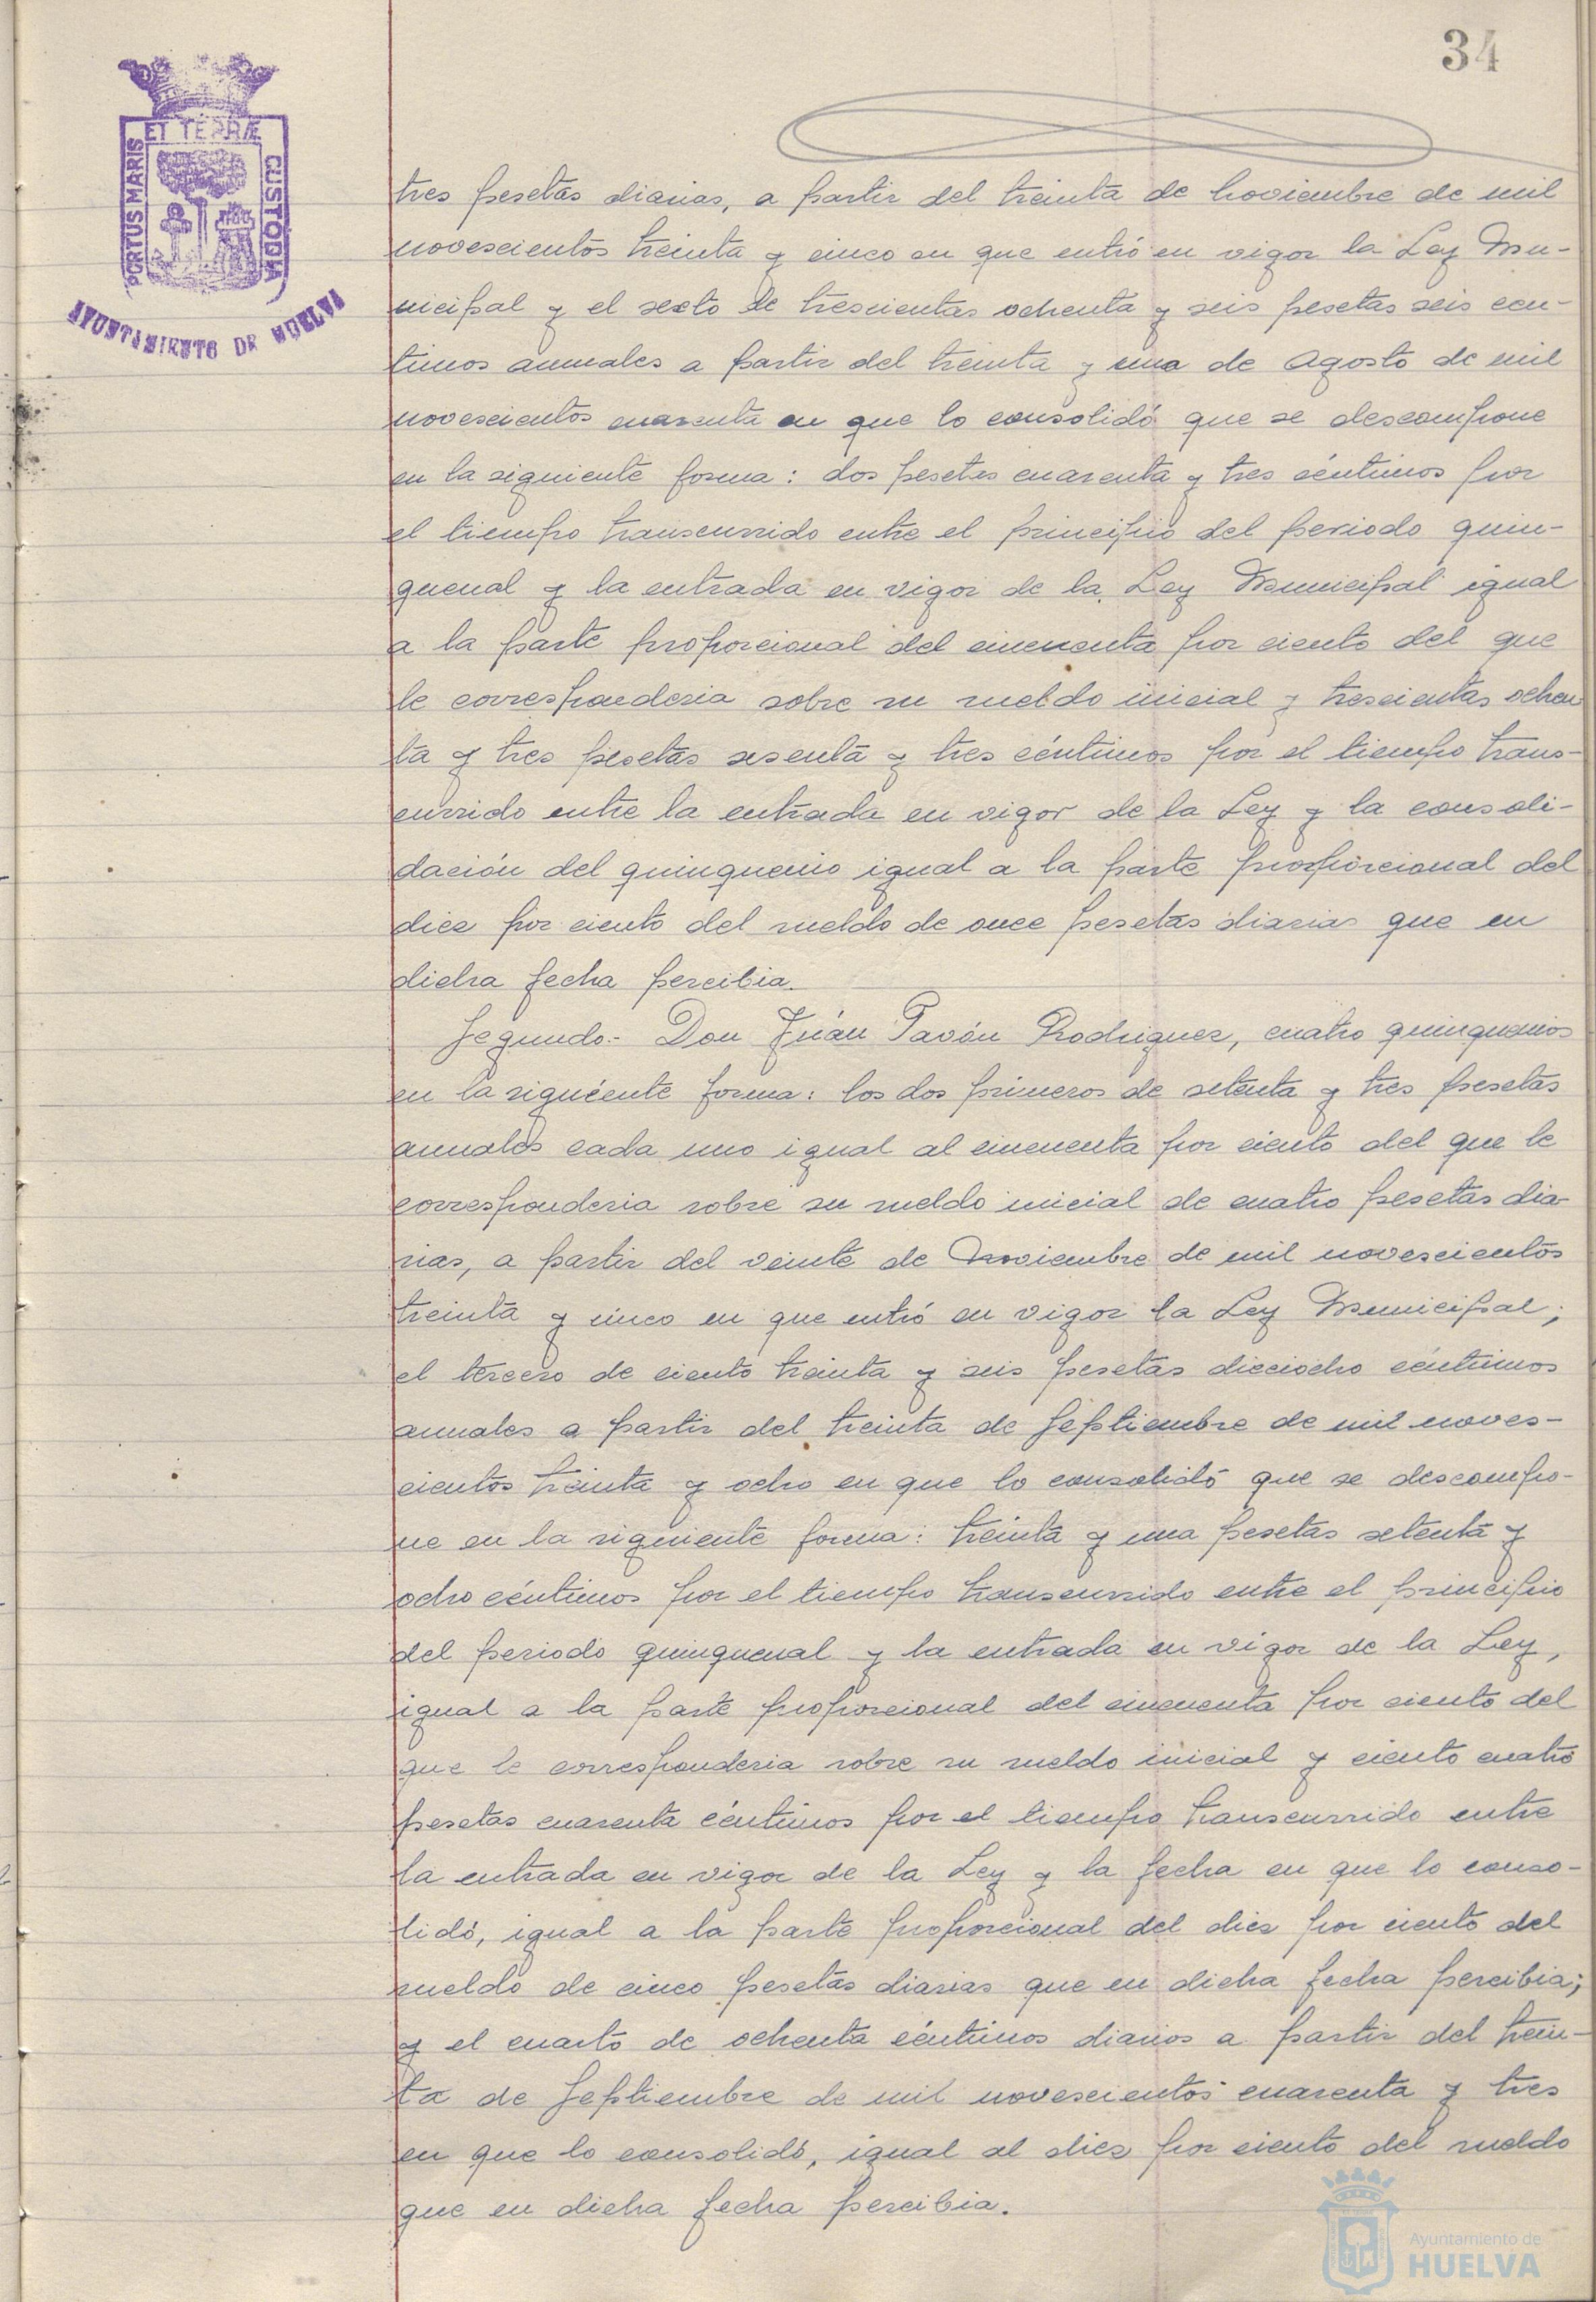 34
ET TERRÆ
PORTUS MARIS
CUSTODIA
AYUNTAMIENTO DE HUELVA
tres pesetas diarias, a partir del treinta de noviembre de mil
novescientos treinta y cinco en que entró en vigor la Ley Mu-
nicipal y el sexto de trescientas ochenta y seis pesetas seis cen-
timos anuales a partir del treinta y uno de Agosto de mil
novescientos cuarenta en que lo consolidó que se descompone
en la siguiente forma: dos pesetas cuarenta y tres céntimos por
el tiempo transcurrido entre el principio del periodo quin-
quenal y la entrada en vigor de la Ley Municipal igual
a la parte proporcional del cincuenta por ciento del que
le corresponderia sobre su sueldo inicial y trescientas ochen
ta y tres pesetas sesenta y tres céntimos por el tiempo trans-
currido entre la entrada en vigor de la Ley y la consoli-
dación del quinquenio igual a la parte proporcional del
diez por ciento del sueldo de once pesetas diarias que en
dicha fecha percibia.
Segundo.- Don Juan Pavón Rodriguez, cuatro quinquenios
en la siguiente forma: los dos primeros de setenta y tres pesetas
anuales cada uno igual al cincuenta por ciento del que le
corresponderia sobre su sueldo inicial de cuatro pesetas dia-
rias, a partir del veinte de Noviembre de mil novescientos
treinta y cinco en que entró en vigor la Ley Municipal;
el tercero de ciento treinta y seis pesetas dieciocho céntimos
anuales a partir del treinta de Septiembre de mil noves-
cientos treinta y ocho en que lo consolidó que se descompo-
ne en la siguiente forma: treinta y una pesetas setenta y
ocho céntimos por el tiempo transcurrido entre el principio
del periodo quinquenal y la entrada en vigor de la Ley,
igual a la parte proporcional del cincuenta por ciento del
que le corresponderia sobre su sueldo inicial y ciento cuatro
pesetas cuarenta céntimos por el tiempo transcurrido entre
la entrada en vigor de la Ley y la fecha en que lo conso-
lidó, igual a la parte proporcional del diez por ciento del
sueldo de cinco pesetas diarias que en dicha fecha percibia;
y el cuarto de ochenta céntimos diarios a partir del trein-
ta de Septiembre de mil novescientos cuarenta y tres
en que lo consolidó, igual al diez por ciento del sueldo
que en dicha fecha percibia.
Ayuntamiento de
HUELVA